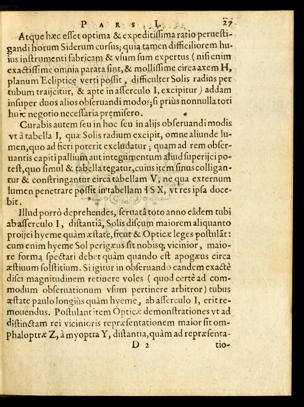 PARS I. 27
Atque hæc esset optima & expeditissima ratio peruesti-
gandi horum Siderum cursus; quia tamen difficiliorem hu-
ius instrumenti fabricam & vsum sum expertus (nisi enim
exactissimè omnia parata sint, & mollissimè circa axem H,
planum Eclipticæ verti possit, difficulter Solis radius per
tubum traijcitur, & aptè in asserculo I, excipitur) addam
insuper duos alios obseruandi modos; si priùs nonnulla toti
huic negotio necessaria præmisero.
Curabis autem seu in hoc seu in alijs obseruandi modis
vt à tabella I, quæ Solis radium excipit, omne aliunde lu-
men, quo ad fieri poterit excludatur; quam ad rem obser-
uantis capiti pallium aut integumentum aliud superijci po-
test, quo simul & tabella tegatur, cuius item sinus colligan-
tur & constringantur circa tabellam V, ne qua externum
lumen penetrare possit in tabellam I S X, vt res ipsa doce-
bit.
Illud porrò deprehendes, seruatâ toto anno eâdem tubi
ab asserculo I, distantiâ, Solis discum maiorem aliquanto
proijci hyeme quàm æstate, sicut & Opticæ leges postulãt:
cum enim hyeme Sol perigæus sit nobisq; vicinior, maio-
re forma spectari debet quàm quando est apogæus circa
æstiuum solstitium. Si igitur in obseruando eandem exactè
disci magnitudinem retinere voles (quod certè ad com-
modum obseruationum vsum pertinere arbitror) tubus
æstate paulo longiùs quàm hyeme, ab asserculo I, erit re-
mouendus. Postulant item Opticæ demonstrationes vt ad
distinctam rei vicinioris repræsentationem maior sit om-
phaloptræ Z, à myoptra Y, distantia, quàm ad repræsenta-
D 2 tio-